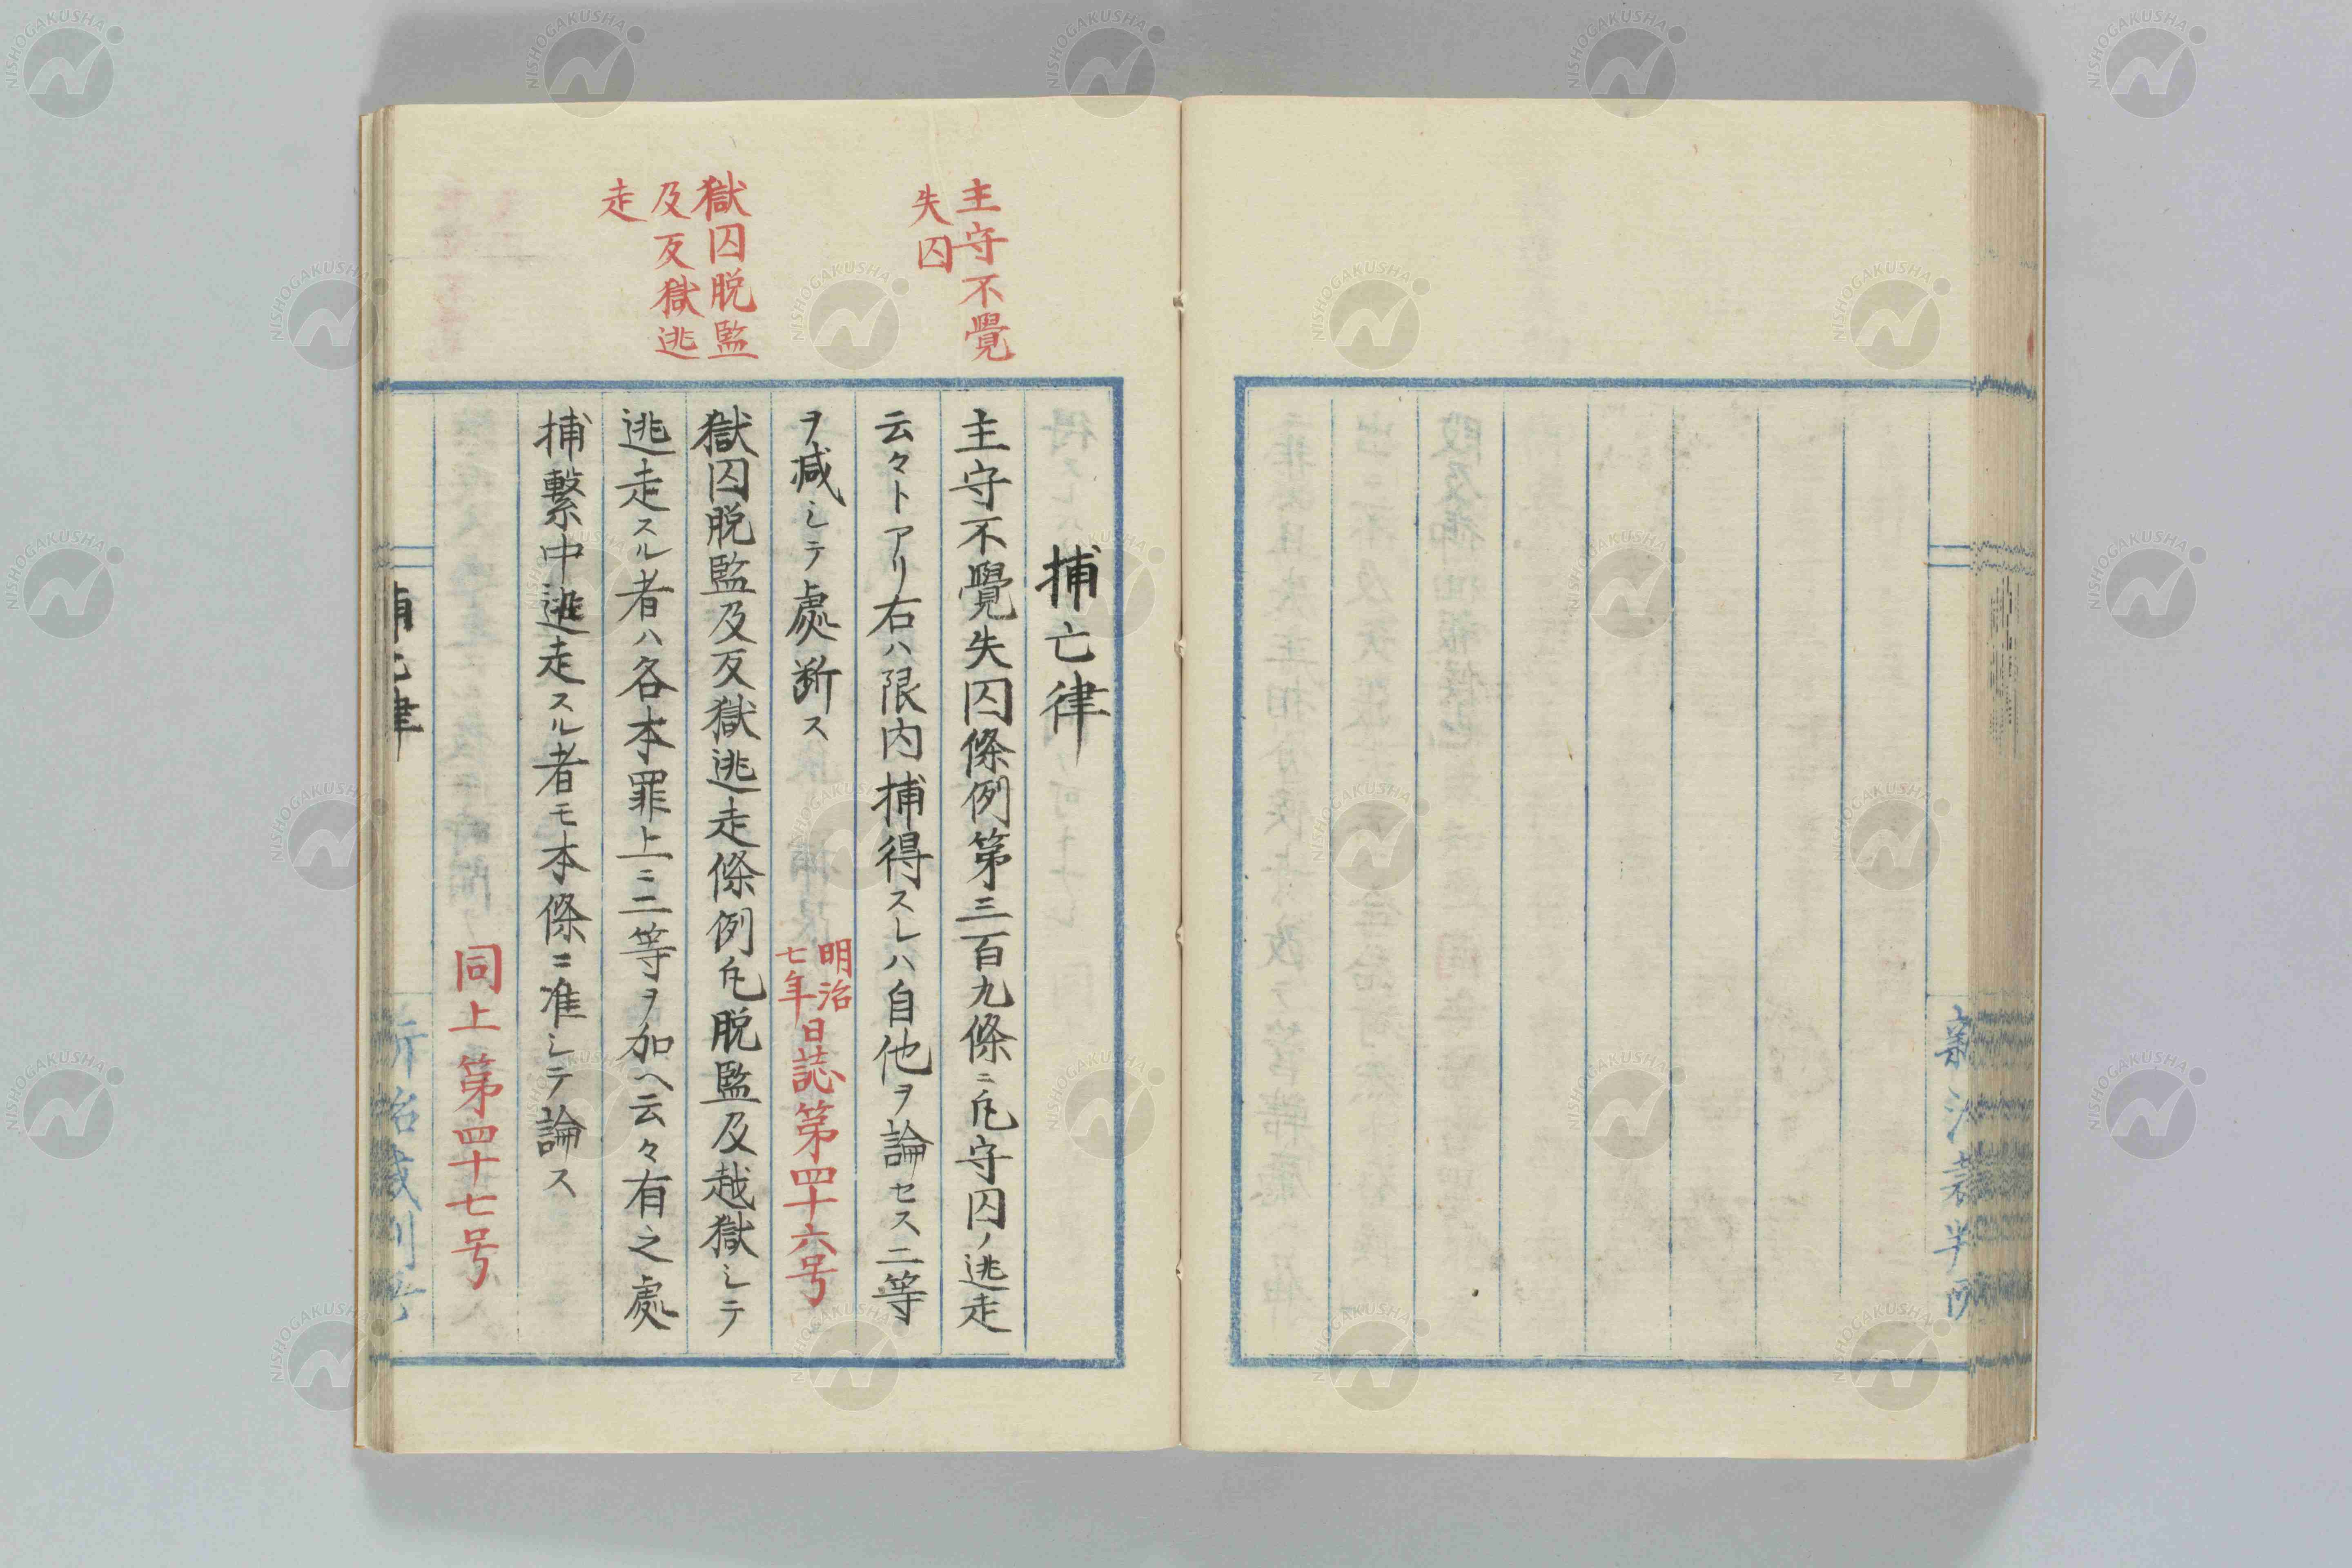 新治裁判所
主守不覺
失囚
獄囚脱監
及反獄逃
走
捕亡律
主守不覺失囚條例第三百九條ニ凢守囚ノ逃走
云々トアリ右ハ限内捕得スレハ自他ヲ論セス二等
ヲ减シテ處断ス
明治七年日誌第四十六号
獄囚脱監及反獄逃走條例凢脱監及越獄シテ
逃走スル者ハ各本罪上ニ二等ヲ加ヘ云々有之處
捕繋中逃走スル者モ本條ニ准シテ論ス
同上第四十七号
捕亡律
新治裁判所
NISHOGAKUSHA